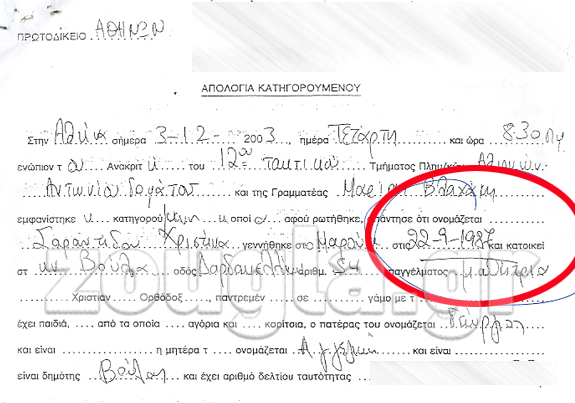 ΠΡΩΤΟΔΙΚΕΙΟ ΑΘΗΝΩΝ
ΑΠΟΛΟΓΙΑ ΚΑΤΗΓΟΡΟΥΜΕΝΟΥ
Στην Αθήνα σήμερα 3-12-2003, ημέρα Τετάρτη και ώρα 8.30 πμ
ενώπιον τ Ανακριτ του 12ου τακτικού Τμήματος Πλημ/κών Αθηνών
και της Γραμματέας
εμφανίστηκε η κατηγορουμένη η οποία αφού ρωτήθηκε, απάντησε ότι ονομάζεται
Σαραντίδου Χριστίνα γεννήθηκε στο Μαρούσι στις 22-9-1987 και κατοικεί
στ ην Βούλα οδός Δαρδανελλίων αριθμ. 54 επαγγέλματος μαθήτρια
Χριστιαν Ορθόδοξ παντρεμέν σε γάμο με τ
zougla.gr
έχει παιδιά, από τα οποία αγόρια και κορίτσια, ο πατέρας του ονομάζεται Γιώργος
και είναι η μητέρα τ ονομάζεται Αγγελική και είναι
είναι δημότης Βούλας και έχει αριθμό δελτίου ταυτότητας